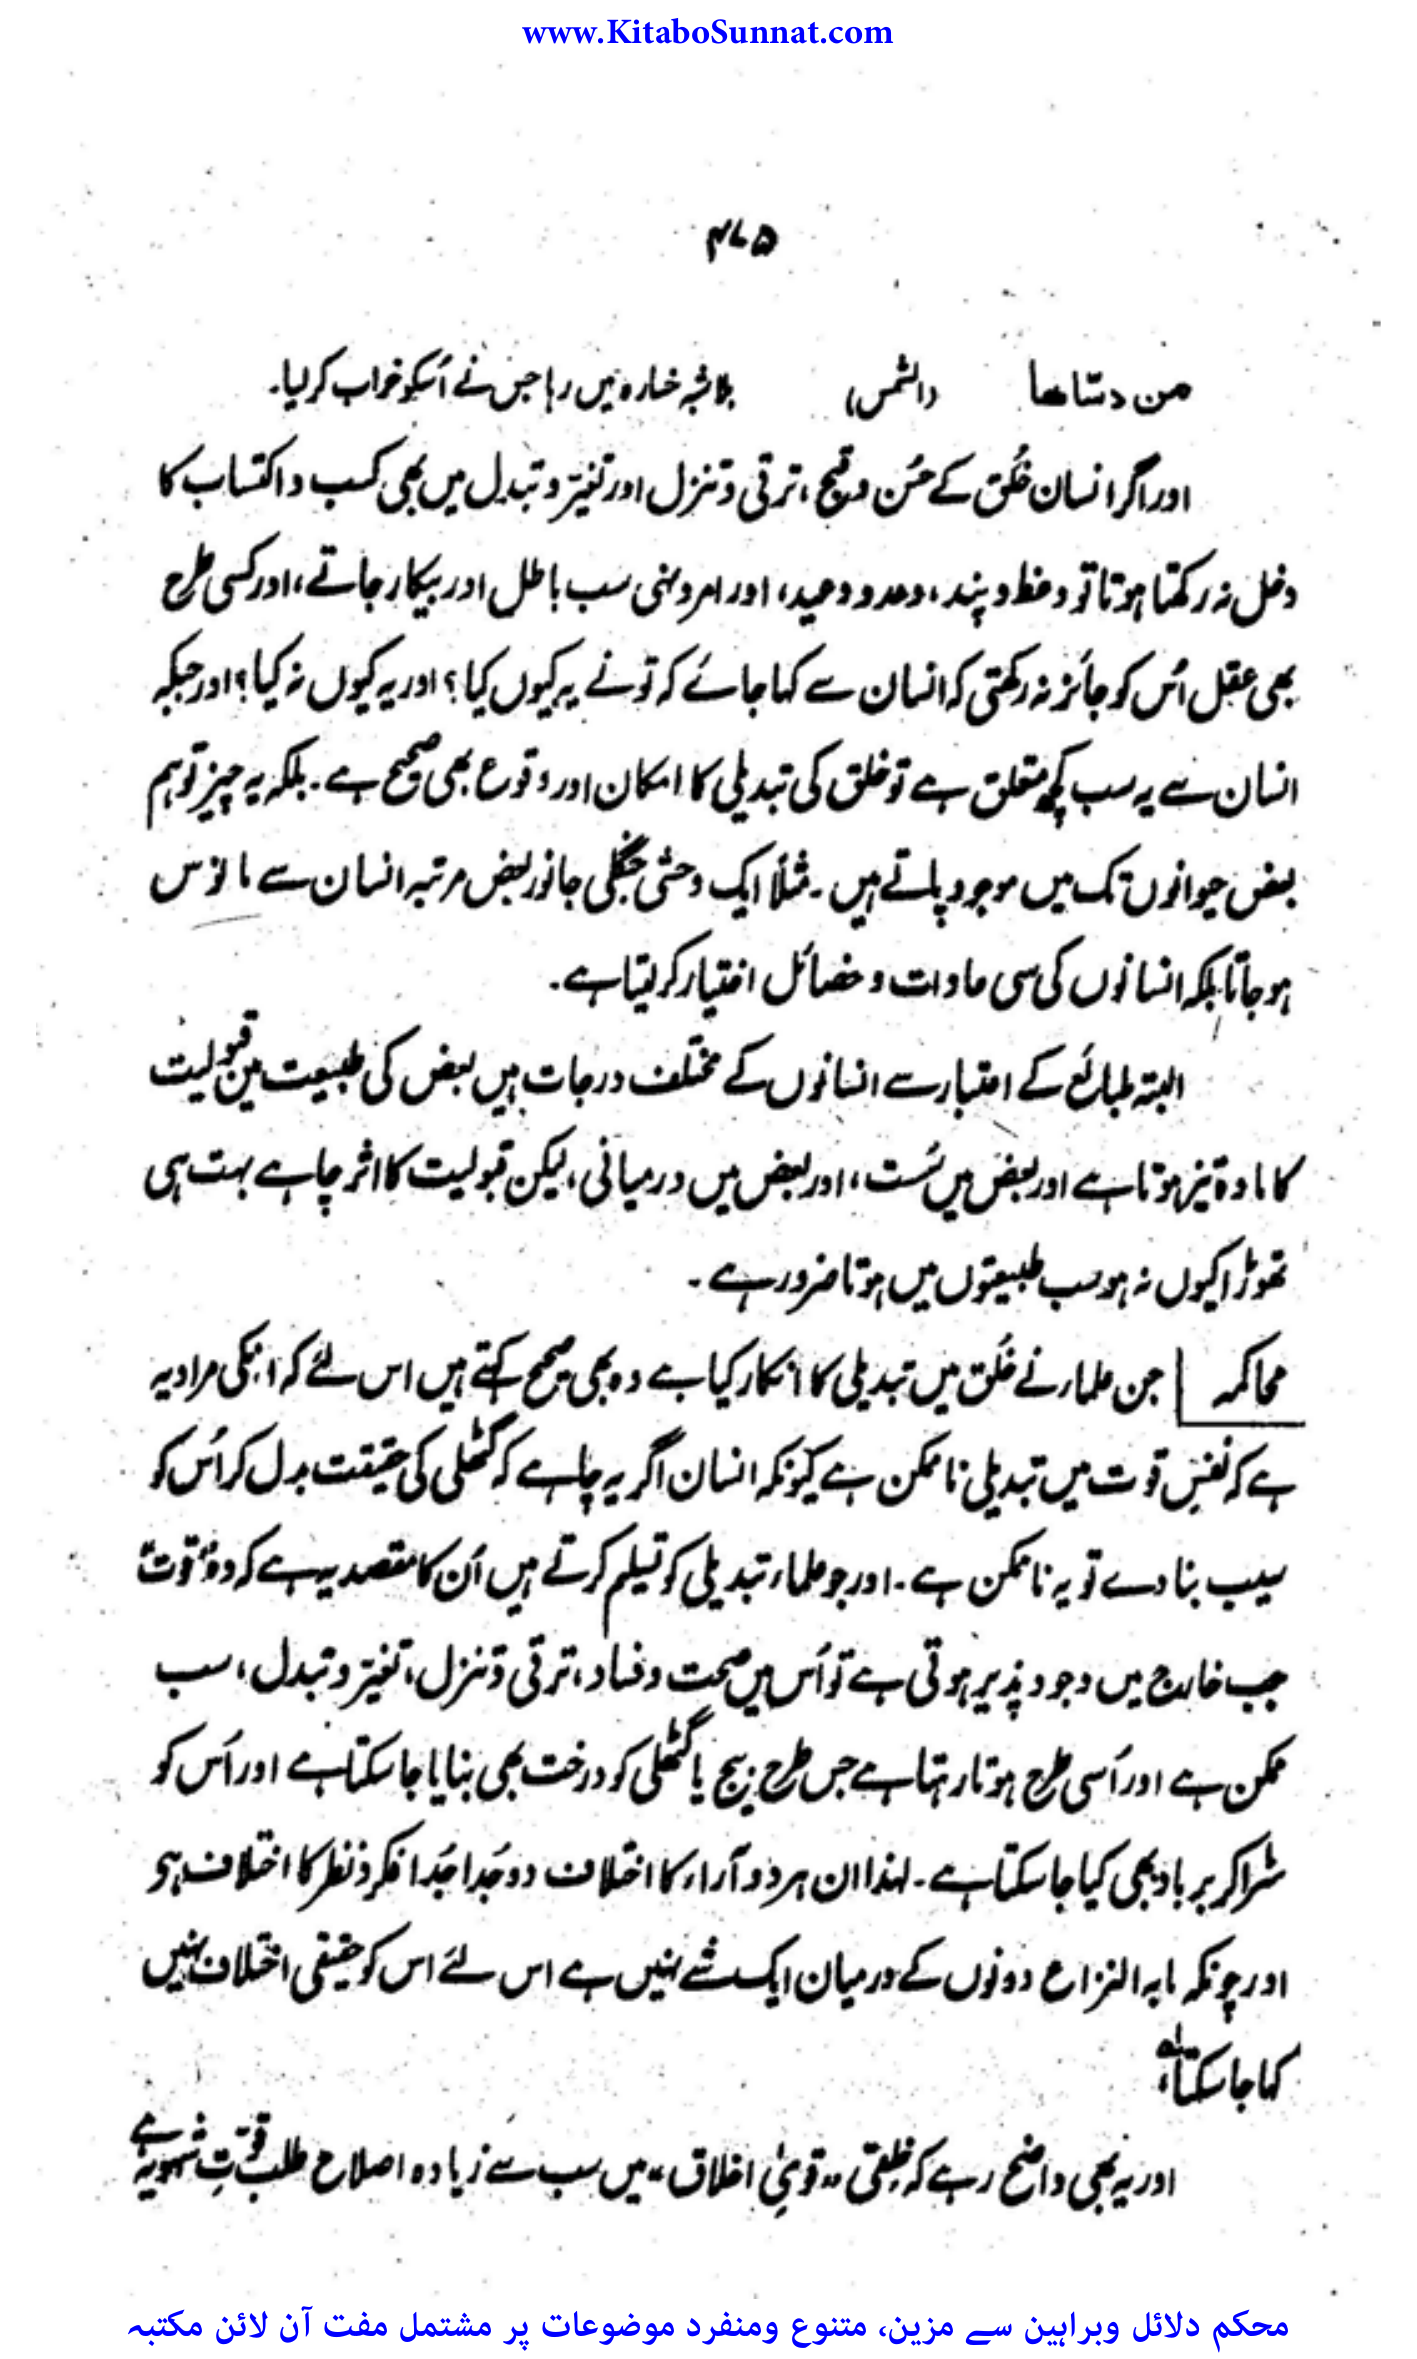 www.KitaboSunnat.com
۴۷۵
من دسّاھا (الشمس) بلاشبہ خسارہ میں رہا جس نے اُسکو خراب کر لیا۔
اور اگر انسان خُلق کے حُسن و قبح، ترقی و تنزل اور تغیّر و تبدل میں بھی کسب و اکتساب کا
دخل نہ رکھتا ہوتا تو وعظ و پند، وعدہ و وعید، اور امر و نہی سب باطل اور بیکار جاتے، اور کسی طرح
بھی عقل اُس کو جائز نہ رکھتی کہ انسان سے کہا جائے کہ تو نے یہ کیوں کیا؟ اور یہ کیوں نہ کیا؟ اور جبکہ
انسان سے یہ سب کچھ متعلق ہے تو خلق کی تبدیلی کا امکان اور وقوع بھی صحیح ہے۔ بلکہ یہ چیز تو ہم
بعض حیوانوں تک میں موجود پاتے ہیں۔ مثلاً ایک وحشی جنگلی جانور بعض مرتبہ انسان سے مانوس
ہو جاتا بلکہ انسانوں کی سی عادات و خصائل اختیار کر لیتا ہے۔
البتہ طبائع کے اعتبار سے انسانوں کے مختلف درجات ہیں بعض کی طبیعت میں قبولیت
کا مادہ تیز ہوتا ہے اور بعض میں سُست، اور بعض میں درمیانی، لیکن قبولیت کا اثر چاہے بہت ہی
تھوڑا کیوں نہ ہو سب طبیعتوں میں ہوتا ضرور ہے۔
محاکمہ جن علمار نے خُلق میں تبدیلی کا انکار کیا ہے وہ بھی صحیح کہتے ہیں اس لئے کہ انکی مراد یہ
ہے کہ نفسِ قوت میں تبدیلی ناممکن ہے کیونکہ انسان اگر یہ چاہے کہ گٹھلی کی حقیقت بدل کر اُس کو
سیب بنا دے تو یہ ناممکن ہے۔ اور جو علماء تبدیلی کو تسلیم کرتے ہیں اُن کا مقصد یہ ہے کہ وہ "قوت"
جب خارج میں وجود پذیر ہوتی ہے تو اُس میں صحت و فساد، ترقی و تنزل، تغیّر و تبدل، سب
ممکن ہے اور اُسی طرح ہوتا رہتا ہے جس طرح بیج یا گٹھلی کو درخت بھی بنایا جا سکتا ہے اور اُس کو
سڑا کر برباد بھی کیا جا سکتا ہے۔ لہذا ان ہر دو آراء کا اختلاف دو جُدا جُدا فکر و نظر کا اختلاف ہی ہے
اور چونکہ مابہ النزاع دونوں کے درمیان ایک شے نہیں ہے اس لئے اس کو حقیقی اختلاف نہیں
کہا جا سکتا۔ لہ
اور یہ بھی واضح رہے کہ خِلقی "قویٰ اخلاق" میں سب سے زیادہ اصلاح طلب قوّتِ شہویہ ہے
محکم دلائل وبراہین سے مزین، متنوع ومنفرد موضوعات پر مشتمل مفت آن لائن مکتبہ